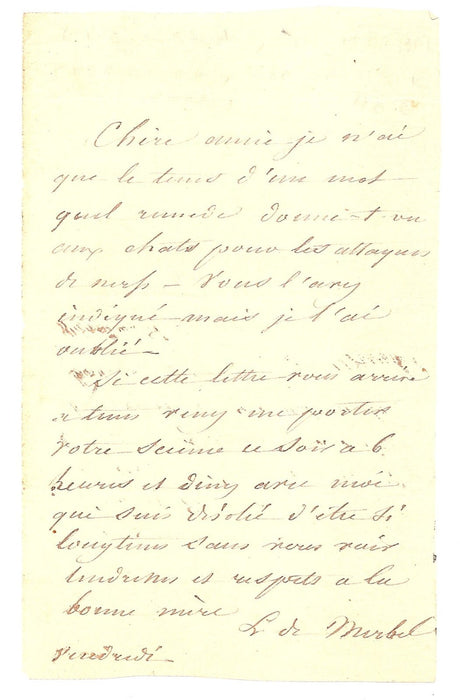 Chère amie je n'ai
que le tems d'un mot -
quel remede donne-t-on
aux chats pour les attaques
de nerfs - Vous l'avez
indiqué - mais je l'ai
oublié -
Si cette lettre vous arrive
a tems venez me porter
votre science ce soir a 6
heures et dinez avec moi
qui suis désolée d'être si
longtems sans vous voir
tendresses et respets a la
bonne mère
L de Mirbel
Vendredi -